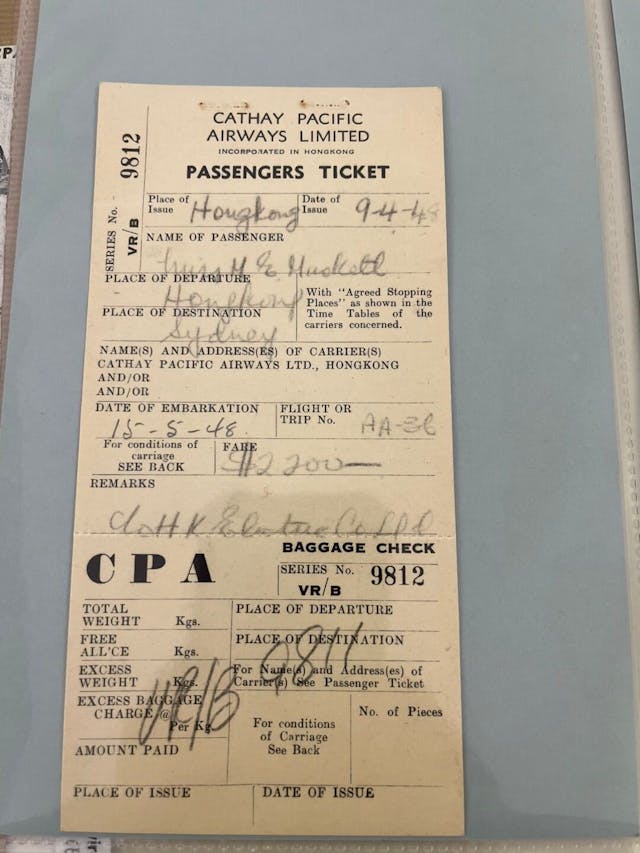 CATHAY PACIFIC
AIRWAYS LIMITED
INCORPORATED IN HONGKONG
PASSENGERS TICKET
SERIES No. VR/B 9812
Place of Issue Hongkong
Date of Issue 9-4-48
NAME OF PASSENGER
Miss M E
PLACE OF DEPARTURE
Hongkong
PLACE OF DESTINATION
Sydney
With "Agreed Stopping
Places" as shown in the
Time Tables of the
carriers concerned.
NAME(S) AND ADDRESS(ES) OF CARRIER(S)
CATHAY PACIFIC AIRWAYS LTD., HONGKONG
AND/OR
AND/OR
DATE OF EMBARKATION
15-5-48
FLIGHT OR
TRIP No.
For conditions of
carriage
SEE BACK
FARE
$2200—
REMARKS
H K Co Ltd
CPA
BAGGAGE CHECK
SERIES No.
VR/B 9812
TOTAL
WEIGHT Kgs.
PLACE OF DEPARTURE
FREE
ALL'CE Kgs.
PLACE OF DESTINATION
EXCESS
WEIGHT Kgs.
For Name(s) and Address(es) of
Carrier(s) See Passenger Ticket
VR/B 9811
EXCESS BAGGAGE
CHARGE @
Per Kg.
For conditions
of Carriage
See Back
No. of Pieces
AMOUNT PAID
PLACE OF ISSUE
DATE OF ISSUE